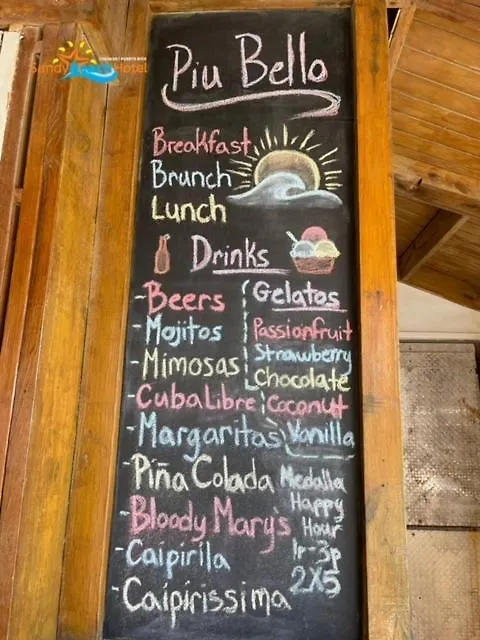 Piu Bello
Breakfast
Brunch
Lunch
Drinks
-Beers
-Mojitos
-Mimosas
-Cuba Libre
-Margaritas
-Piña Colada
-Bloody Mary's
-Caipirila
-Caipirissima
Gelatos
Passionfruit
Strawberry
Chocolate
Coconut
Vanilla
Medalla
Happy
Hour
1p-3p
2X5
Sandy Hotel